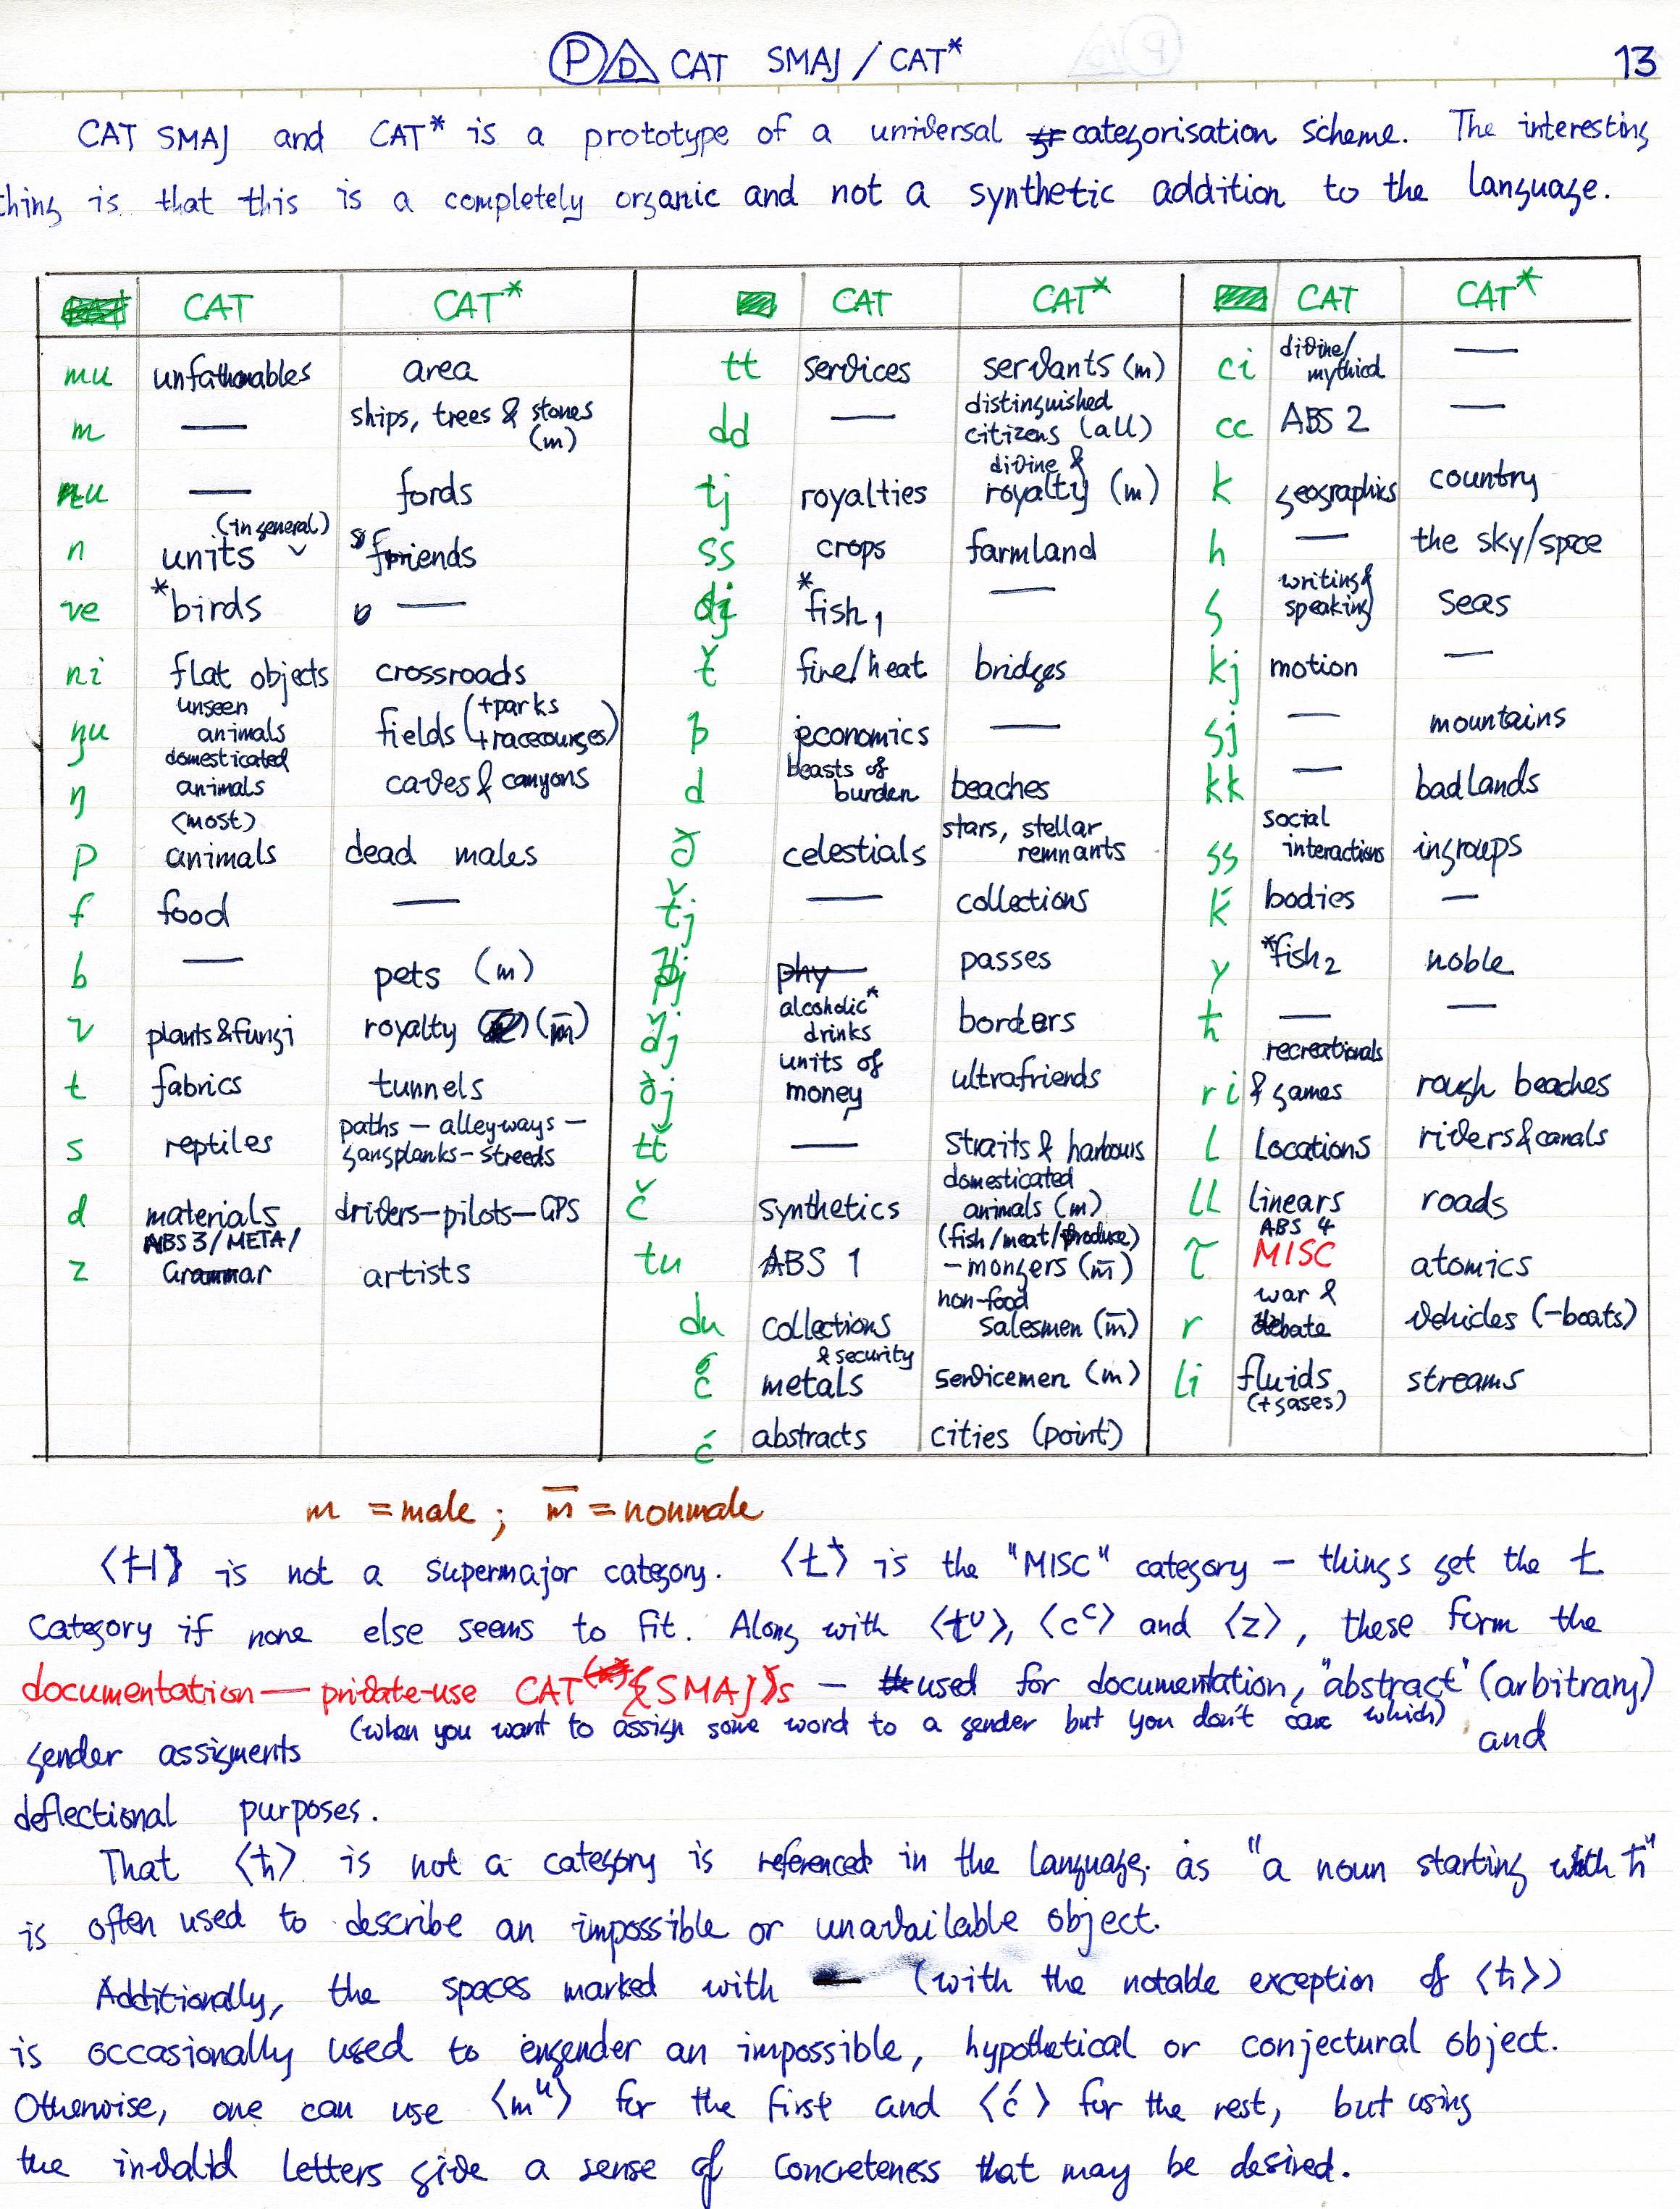 P D CAT SMAJ / CAT*
13
CAT SMAJ and CAT* is a prototype of a universal categorisation scheme. The interesting
thing is that this is a completely organic and not a synthetic addition to the language.
CAT CAT* CAT CAT* CAT CAT*
mu unfathomables area tt services servants (m) ci divine/mythical —
m — ships, trees & stones (m) dd — distinguished citizens (all) cc ABS 2 —
nu — fords tj royalties divine & royalty (m) k geographics country
n units (in general) friends ss crops farmland h — the sky/spce
ve *birds — dj *fish 1 — ʃ writing & speaking seas
ni flat objects crossroads ť fire/heat bridges kj motion —
ŋu unseen animals fields (+parks +racecourses) þ economics — ʃj — mountains
ŋ domesticated animals caves & canyons d beasts of burden beaches kk — badlands
p (most) animals dead males ð celestials stars, stellar remnants ss social interactions ingroups
f food — ťj — collections ḱ bodies —
b — pets (m) passes y *fish 2 noble
v plants & fungi royalty (m̅) alcoholic* drinks borders ħ — —
t fabrics tunnels ðj units of money ultrafriends ri recreationals & games rough beaches
s reptiles paths — alleyways — gangplanks — streeds tť — straits & harbours l Locations rivers & canals
d materials drivers—pilots—GPS č synthetics domesticated animals (m) ll linears roads
z ABS 3/META/Grammar artists tu ABS 1 (fish/meat/produce) -mongers (m̅) ABS 4 MISC atomics
du collections non-food salesmen (m̅) r war & debate vehicles (-boats)
metals & security servicemen (m) li fluids (+gases) streams
ć abstracts cities (point)
m = male ; m̅ = nonmale
⟨Ħ⟩ is not a supermajor category. ⟨ŧ⟩ is the "MISC" category — things get the ŧ
Category if none else seems to fit. Along with ⟨tᵁ⟩, ⟨cᶜ⟩ and ⟨z⟩, these form the
documentation — private-use CAT {SMAJ}s — used for documentation, "abstract" (arbitrary)
gender assigments (when you want to assign some word to a gender but you don't care which), and
deflectional purposes.
That ⟨ħ⟩ is not a category is referenced in the language, as "a noun starting with ħ"
is often used to describe an impossible or unavailable object.
Additionally, the spaces marked with — (with the notable exception of ⟨ħ⟩)
is occasionally used to engender an impossible, hypothetical or conjectural object.
Otherwise, one can use ⟨mᵘ⟩ for the first and ⟨ć⟩ for the rest, but using
the invalid letters give a sense of concreteness that may be desired.